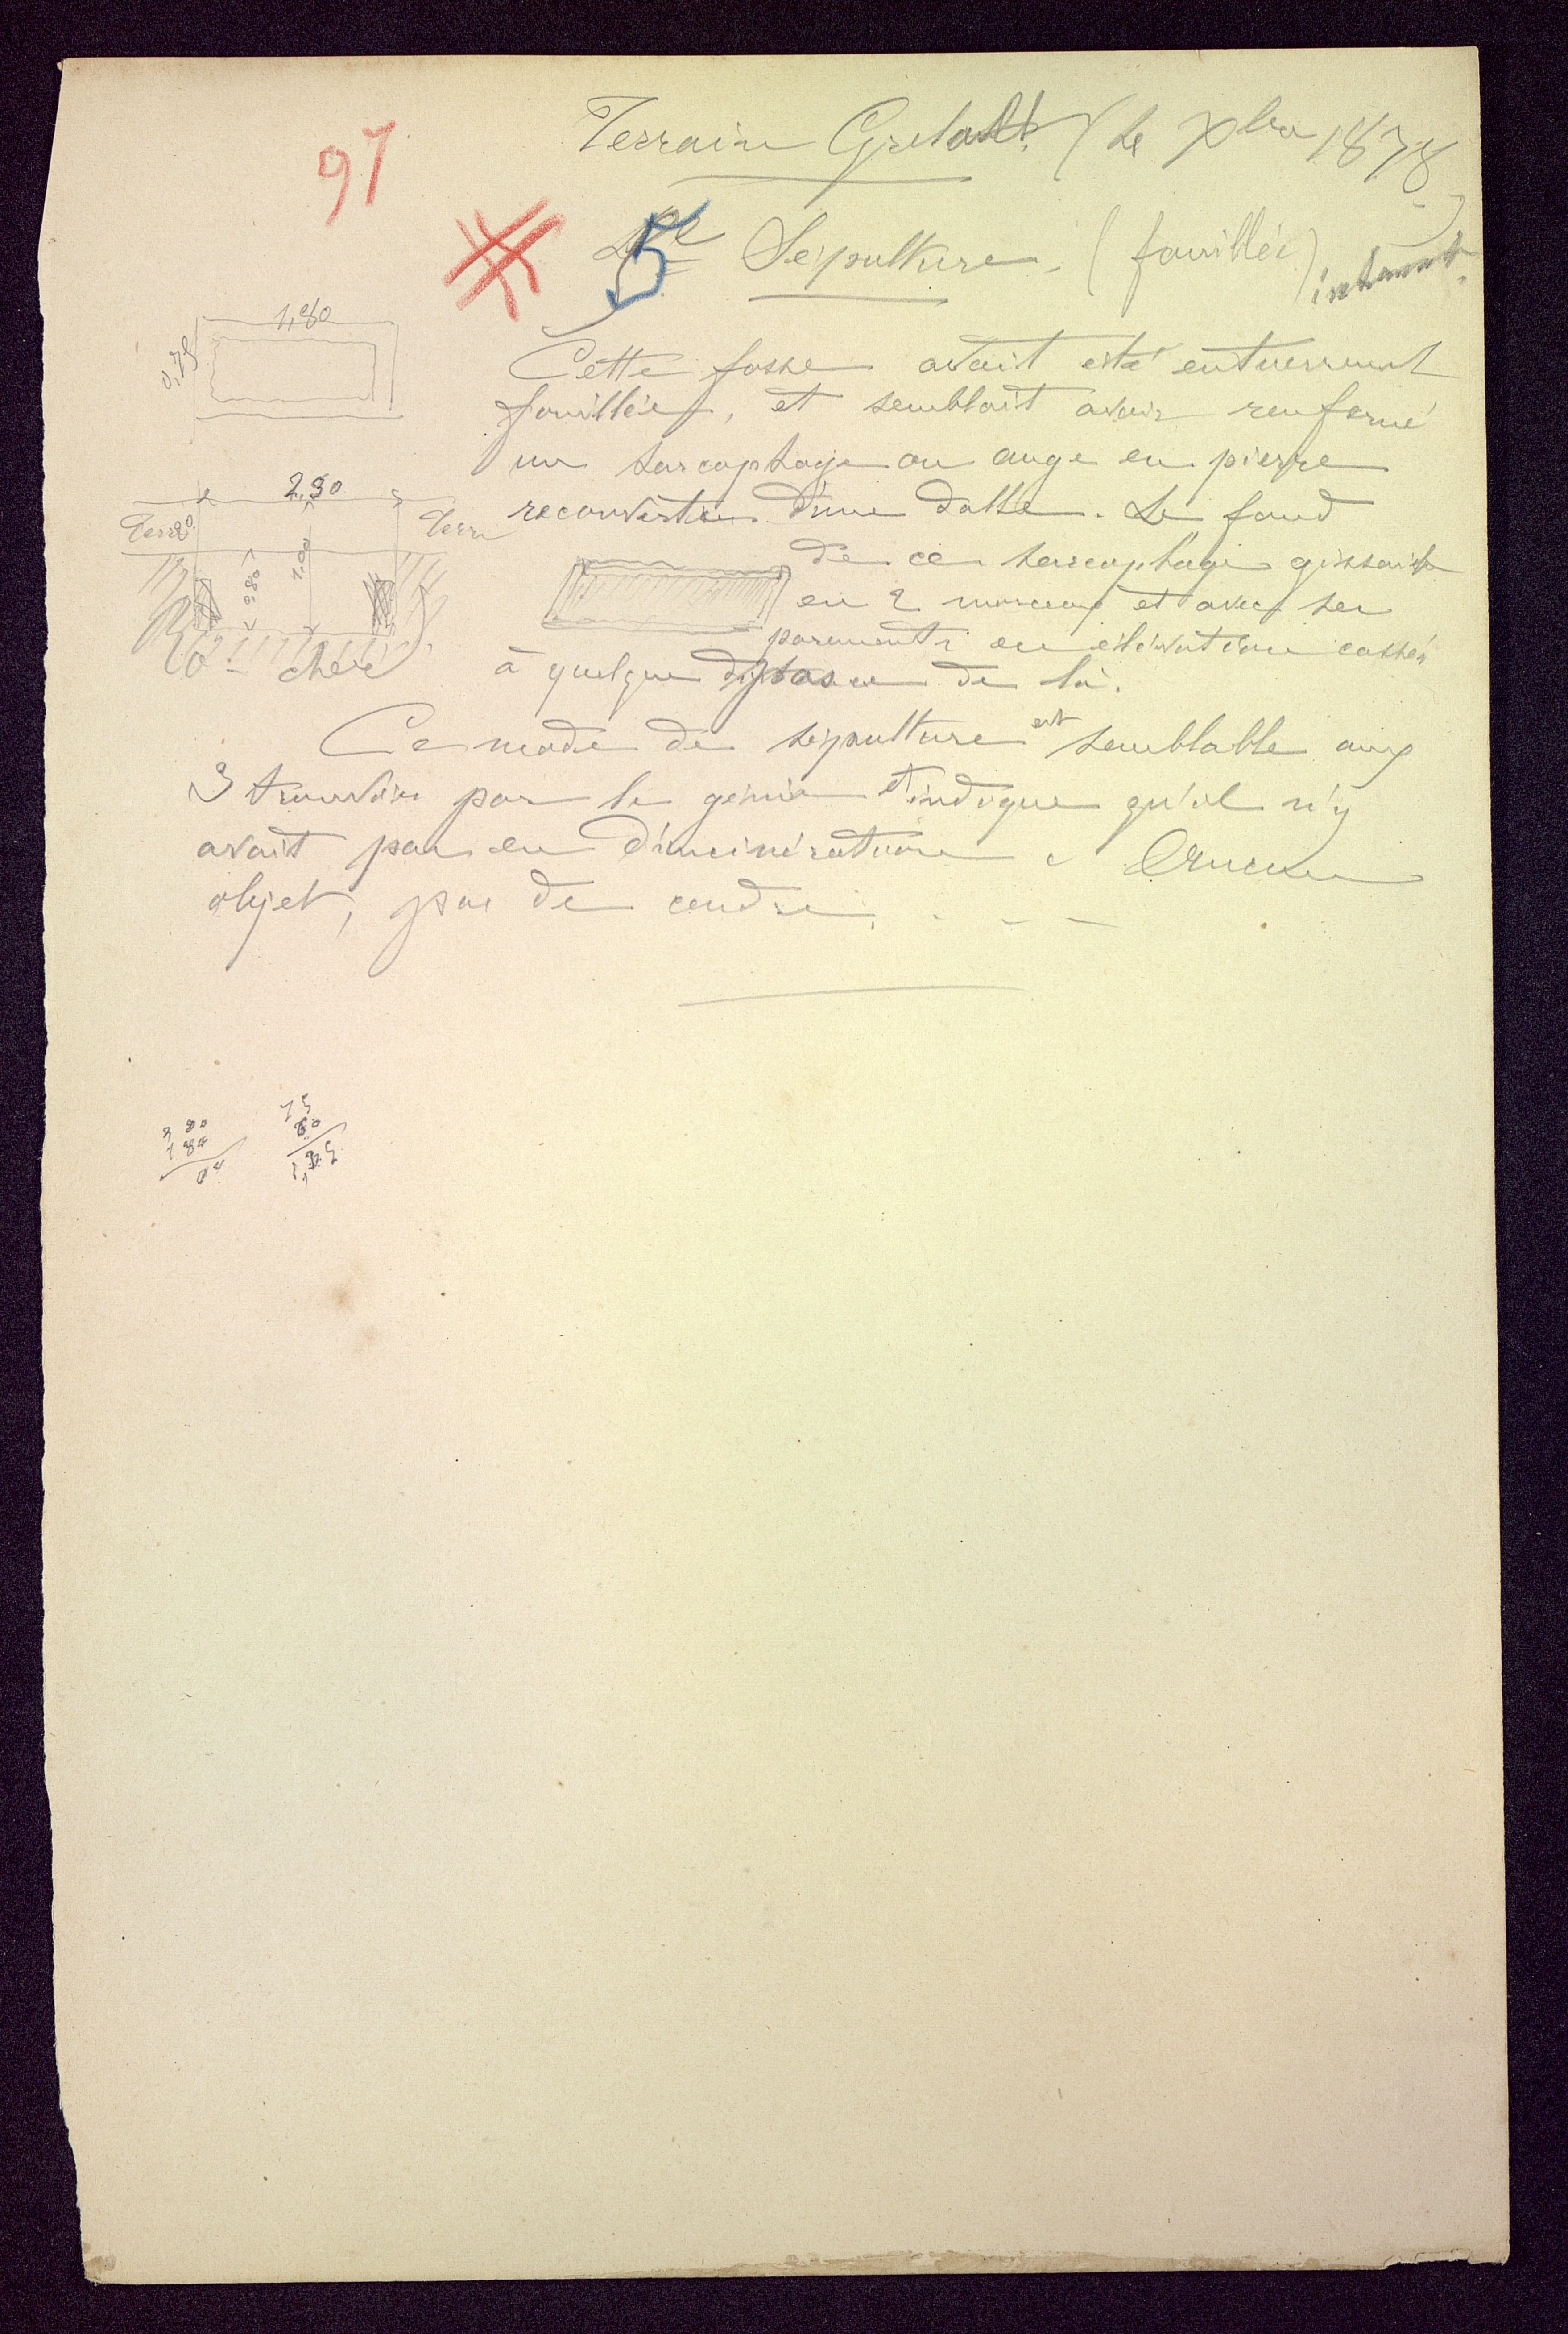 97
Terrain Grelat (le Xbre 1878.)
5e Sépulture. (fouillée)
1,80
0,75
Cette fosse avait été entièrement
fouillée, et semblait avoir renfermé
un sarcophage ou auge en pierre
recouverte d'une dalle. Le fond
de ce sarcophage gissait
en 2 morceaux et avec ses
parements en élévation cassés
à quelque distance de là.
2,30
Terre
Terre
0,80
1,00
Ro-cher
Ce mode de sépulture est semblable aux
3 trouvées par le génie et indique qu'il n'y
avait pas eu d'incinération. Aucun
objet, pas de cendre. - - -
75
80